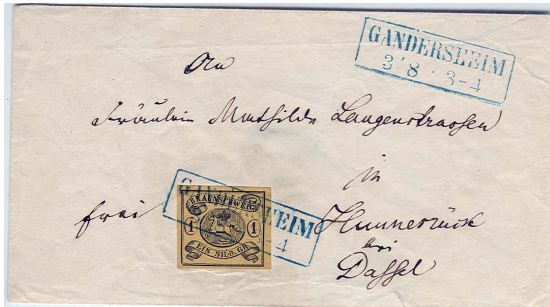 GANDERSHEIM
3/8 . 3-4
An
Fräulein Mathilde Langenstrassen
in
Hunnesrück
bei
Dassel
frei
GANDERSHEIM
4
BRAUNSCHWEIG
1 1
EIN SILB. GR.